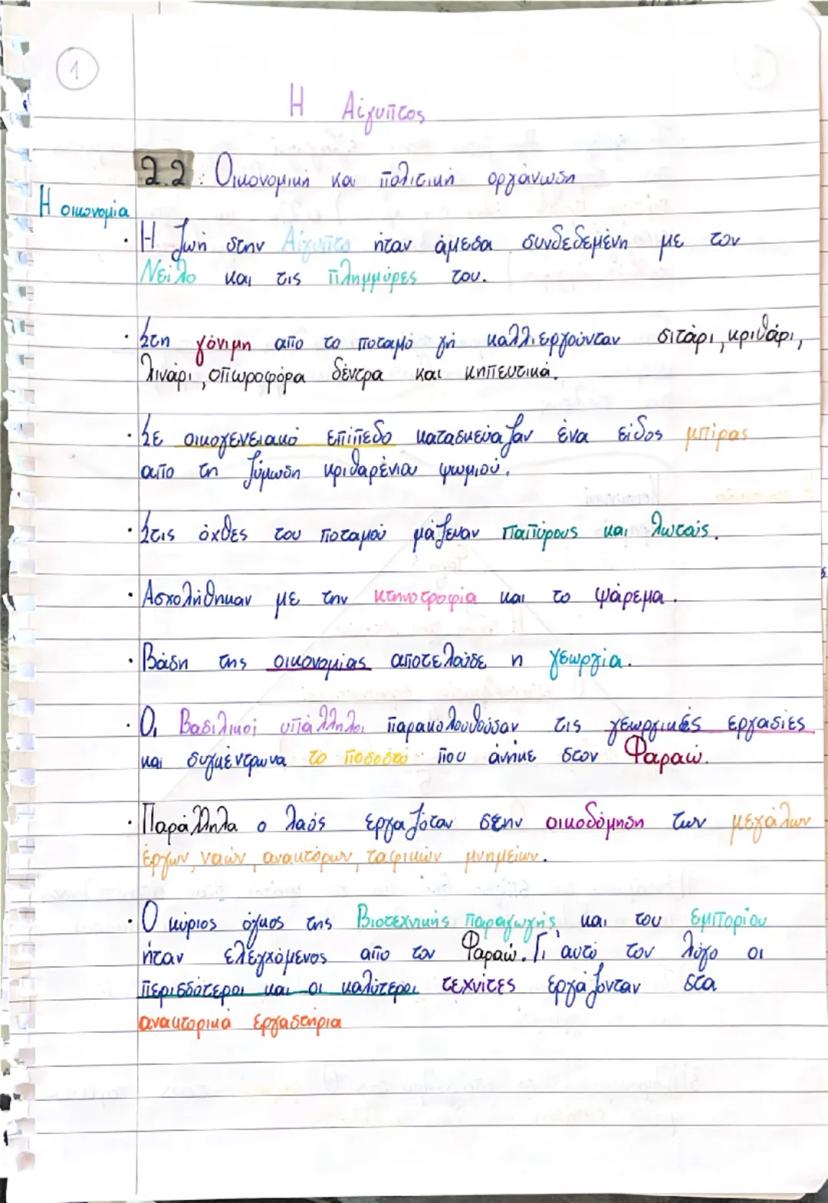 1
Η Αίγυπτος
2.2: Οικονομική και πολιτική οργάνωση
Η οικονομία
· Η ζωή στην Αίγυπτο ήταν άμεσα συνδεδεμένη με τον
Νείλο και τις πλημμύρες του.
· Στη γόνιμη από το ποταμό γή καλλιεργούνταν σιτάρι, κριθάρι,
λινάρι, οπωροφόρα δέντρα και κηπευτικά.
· Σε οικογενειακό επίπεδο κατασκεύαζαν ένα είδος μπίρας
από τη ζύμωση κριθαρένιου ψωμιού.
· Στις όχθες του ποταμού μάζευαν παπύρους και λωτούς.
· Ασχολήθηκαν με την κτηνοτροφία και το ψάρεμα.
· Βάση της οικονομίας αποτελούσε η γεωργία.
· Οι Βασιλικοί υπάλληλοι παρακολουθούσαν τις γεωργικές εργασίες
και συγκέντρωνα το ποσοστό που άνηκε στον Φαραώ.
· Παράλληλα ο λαός εργαζόταν στην οικοδόμηση των μεγάλων
έργων, ναών, ανακτόρων, ταφικών μνημείων.
· Ο κύριος όγκος της Βιοτεχνικής παραγωγής και του εμπορίου
ήταν ελεγχόμενος από τον Φαραώ. Γι' αυτό τον λόγο οι
περισσότεροι και οι καλύτεροι τεχνίτες εργάζονταν στα
ανακτορικά εργαστήρια